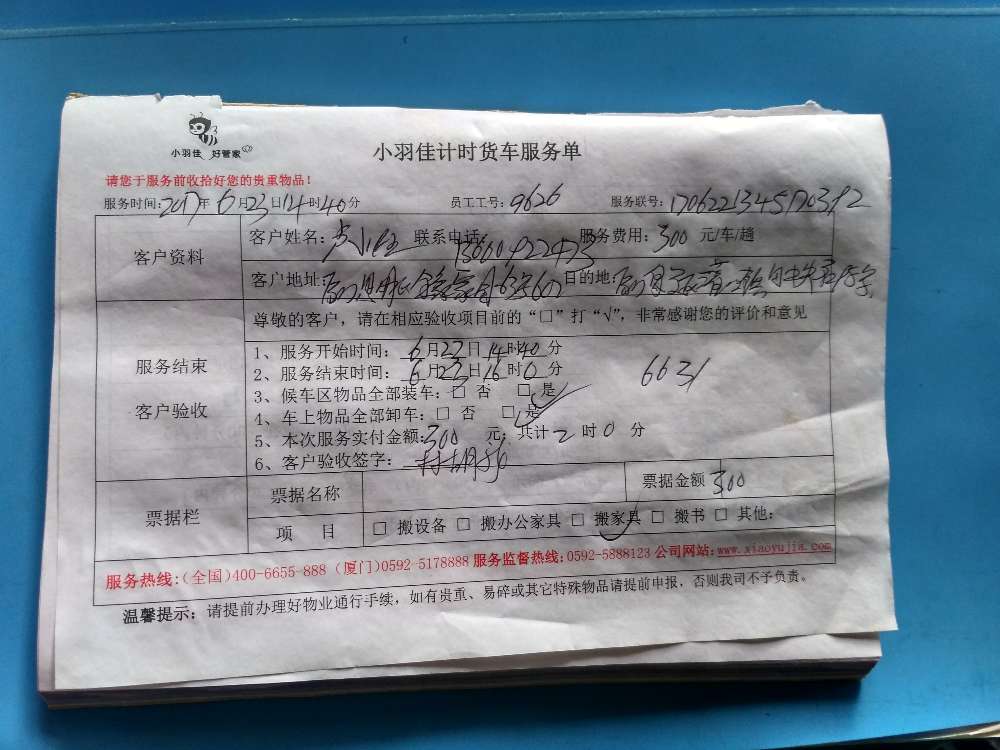 小羽佳 好管家
小羽佳计时货车服务单
请您于服务前收拾好您的贵重物品！
服务时间:2017年6月23日14时40分 员工工号:9626 服务联号:
客户资料
客户姓名: 联系电话: 服务费用:300 元/车/趟
客户地址: 目的地:
服务结束
客户验收
尊敬的客户，请在相应验收项目前的“□”打“√”，非常感谢您的评价和意见
1、服务开始时间：6月23日14时40分
2、服务结束时间：6月23日16时0分
6631
3、候车区物品全部装车：□ 否 □ 是 ✓
4、车上物品全部卸车：□ 否 □ 是 ✓
5、本次服务实付金额:300 元；共计2时0分
6、客户验收签字：
票据栏
票据名称 票据金额 300
项 目 □ 搬设备 □ 搬办公家具 □ 搬家具 ✓ □ 搬书 □ 其他:
服务热线:(全国)400-6655-888 (厦门)0592-5178888 服务监督热线:0592-5888123 公司网站:www.xiaoyujia.com
温馨提示：请提前办理好物业通行手续，如有贵重、易碎或其它特殊物品请提前申报，否则我司不予负责。